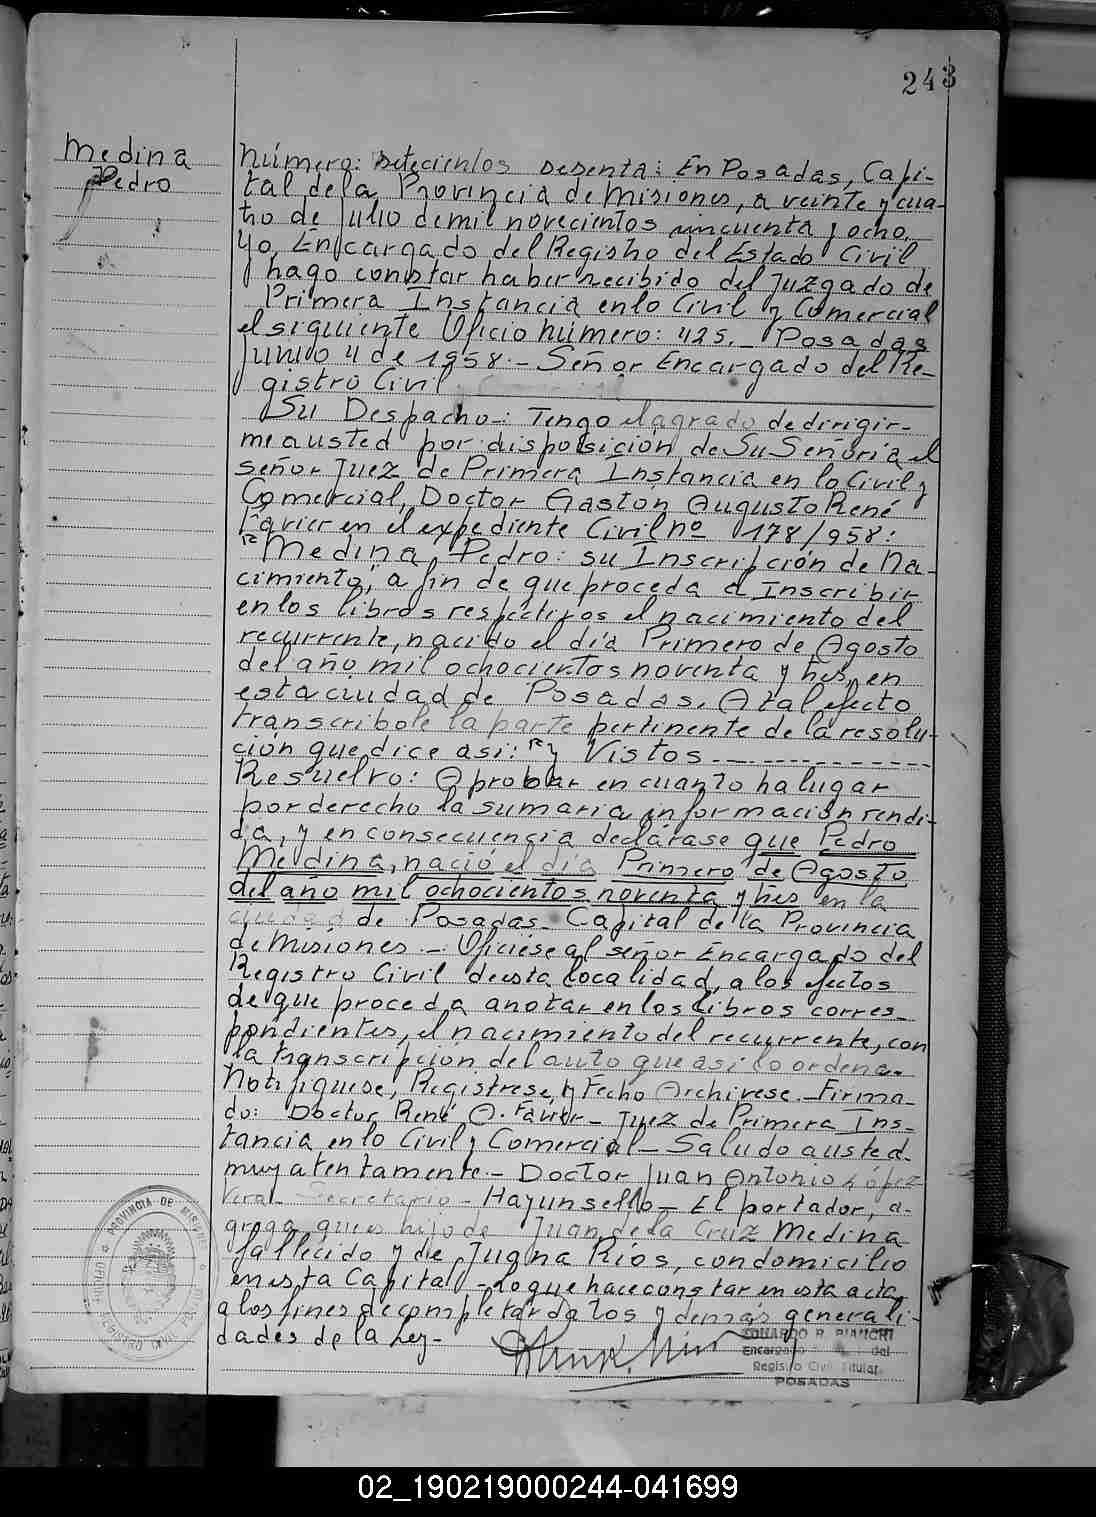 243
Medina
Pedro
Número: Setecientos sesenta: En Posadas, Capi-
tal de la Provincia de Misiones, a veinte y cua-
tro de Julio de mil novecientos cincuenta y ocho,
Yo, Encargado del Registro del Estado Civil
hago constar haber recibido del Juzgado de
Primera Instancia en lo Civil y Comercial
el siguiente Oficio número: 425._ Posadas
Junio 4 de 1958.- Señor Encargado del Re-
gistro Civil
Su Despacho-: Tengo el agrado de dirigir-
me a usted por disposición de Su Señoría el
señor Juez de Primera Instancia en lo Civil y
Comercial, Doctor Gaston Augusto René
Favier en el expediente Civil nº 178/958:
"Medina, Pedro: su Inscripción de Na-
cimiento", a fin de que proceda a Inscribir
en los libros respectivos el nacimiento del
recurrente, nacido el día Primero de Agosto
del año mil ochocientos noventa y tres, en
esta ciudad de Posadas. A tal efecto
transcribole la parte pertinente de la resolu-
ción que dice asi: "y Vistos.-----------
Resuelvo: Aprobar en cuanto ha lugar
por derecho la sumaria informacion rendi-
da, y en consecuencia declárase que Pedro
Medina, nació el día Primero de Agosto
del año mil ochocientos noventa y tres en la
ciudad de Posadas. Capital de la Provincia
de Misiones.- Oficiese al señor Encargado del
Registro Civil de esta localidad, a los efectos
de que proceda anotar en los libros corres-
pondientes, el nacimiento del recurrente, con
la transcripción del auto que asi lo ordena.
Notifiquese, Registrese, y Fecho Archivese.-Firma-
do: Doctor René A. Favier- Juez de Primera Ins-
tancia en lo Civil y Comercial- Saludo a usted
muy atentamente.- Doctor Juan Antonio López
Secretario - Hay un sello- El portador, a-
grega que es hijo de Juan de la Cruz Medina
fallecido y de Juana Ríos, con domicilio
en esta Capital - lo que hace constar en esta acta,
a los fines de completar datos y demás generali-
dades de la Ley-
EDUARDO R. BIANCHI
Encargado del
Registro Civil Titular
POSADAS
PROVINCIA DE MISIONES
02_190219000244-041699